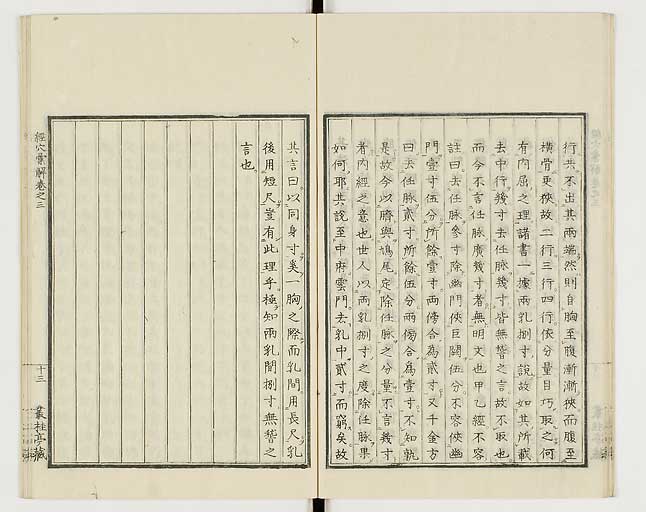 行共不出其兩端然則自胸至腹漸漸狹而腹至
橫骨更狹故二行三行四行依分量目巧取之何
有内屈之理諸書一據兩乳捌寸說故如其所載
去中行幾寸去任脉幾寸皆無稽之言故不取也
而今不言任脉廣幾寸者無明文也甲乙經不容
註曰去任脉參寸除幽門俠巨闕伍分不容俠幽
門壹寸伍分所餘壹寸兩傍合為貳寸又千金方
曰去任脉貳寸所餘伍分兩傍合為壹寸不知孰
是故今以臍與鳩尾定除任脉之分量不言幾寸
者内經之意也世人以兩乳捌寸之度除任脉果
如何耶其說至中府雲門去乳中貳寸而窮矣故
其言曰以同身寸奚一胸之際而乳間用長尺乳
後用短尺豈有此理乎極知兩乳間捌寸無稽之
言也
經穴彙解卷之三
十三
叢桂亭藏